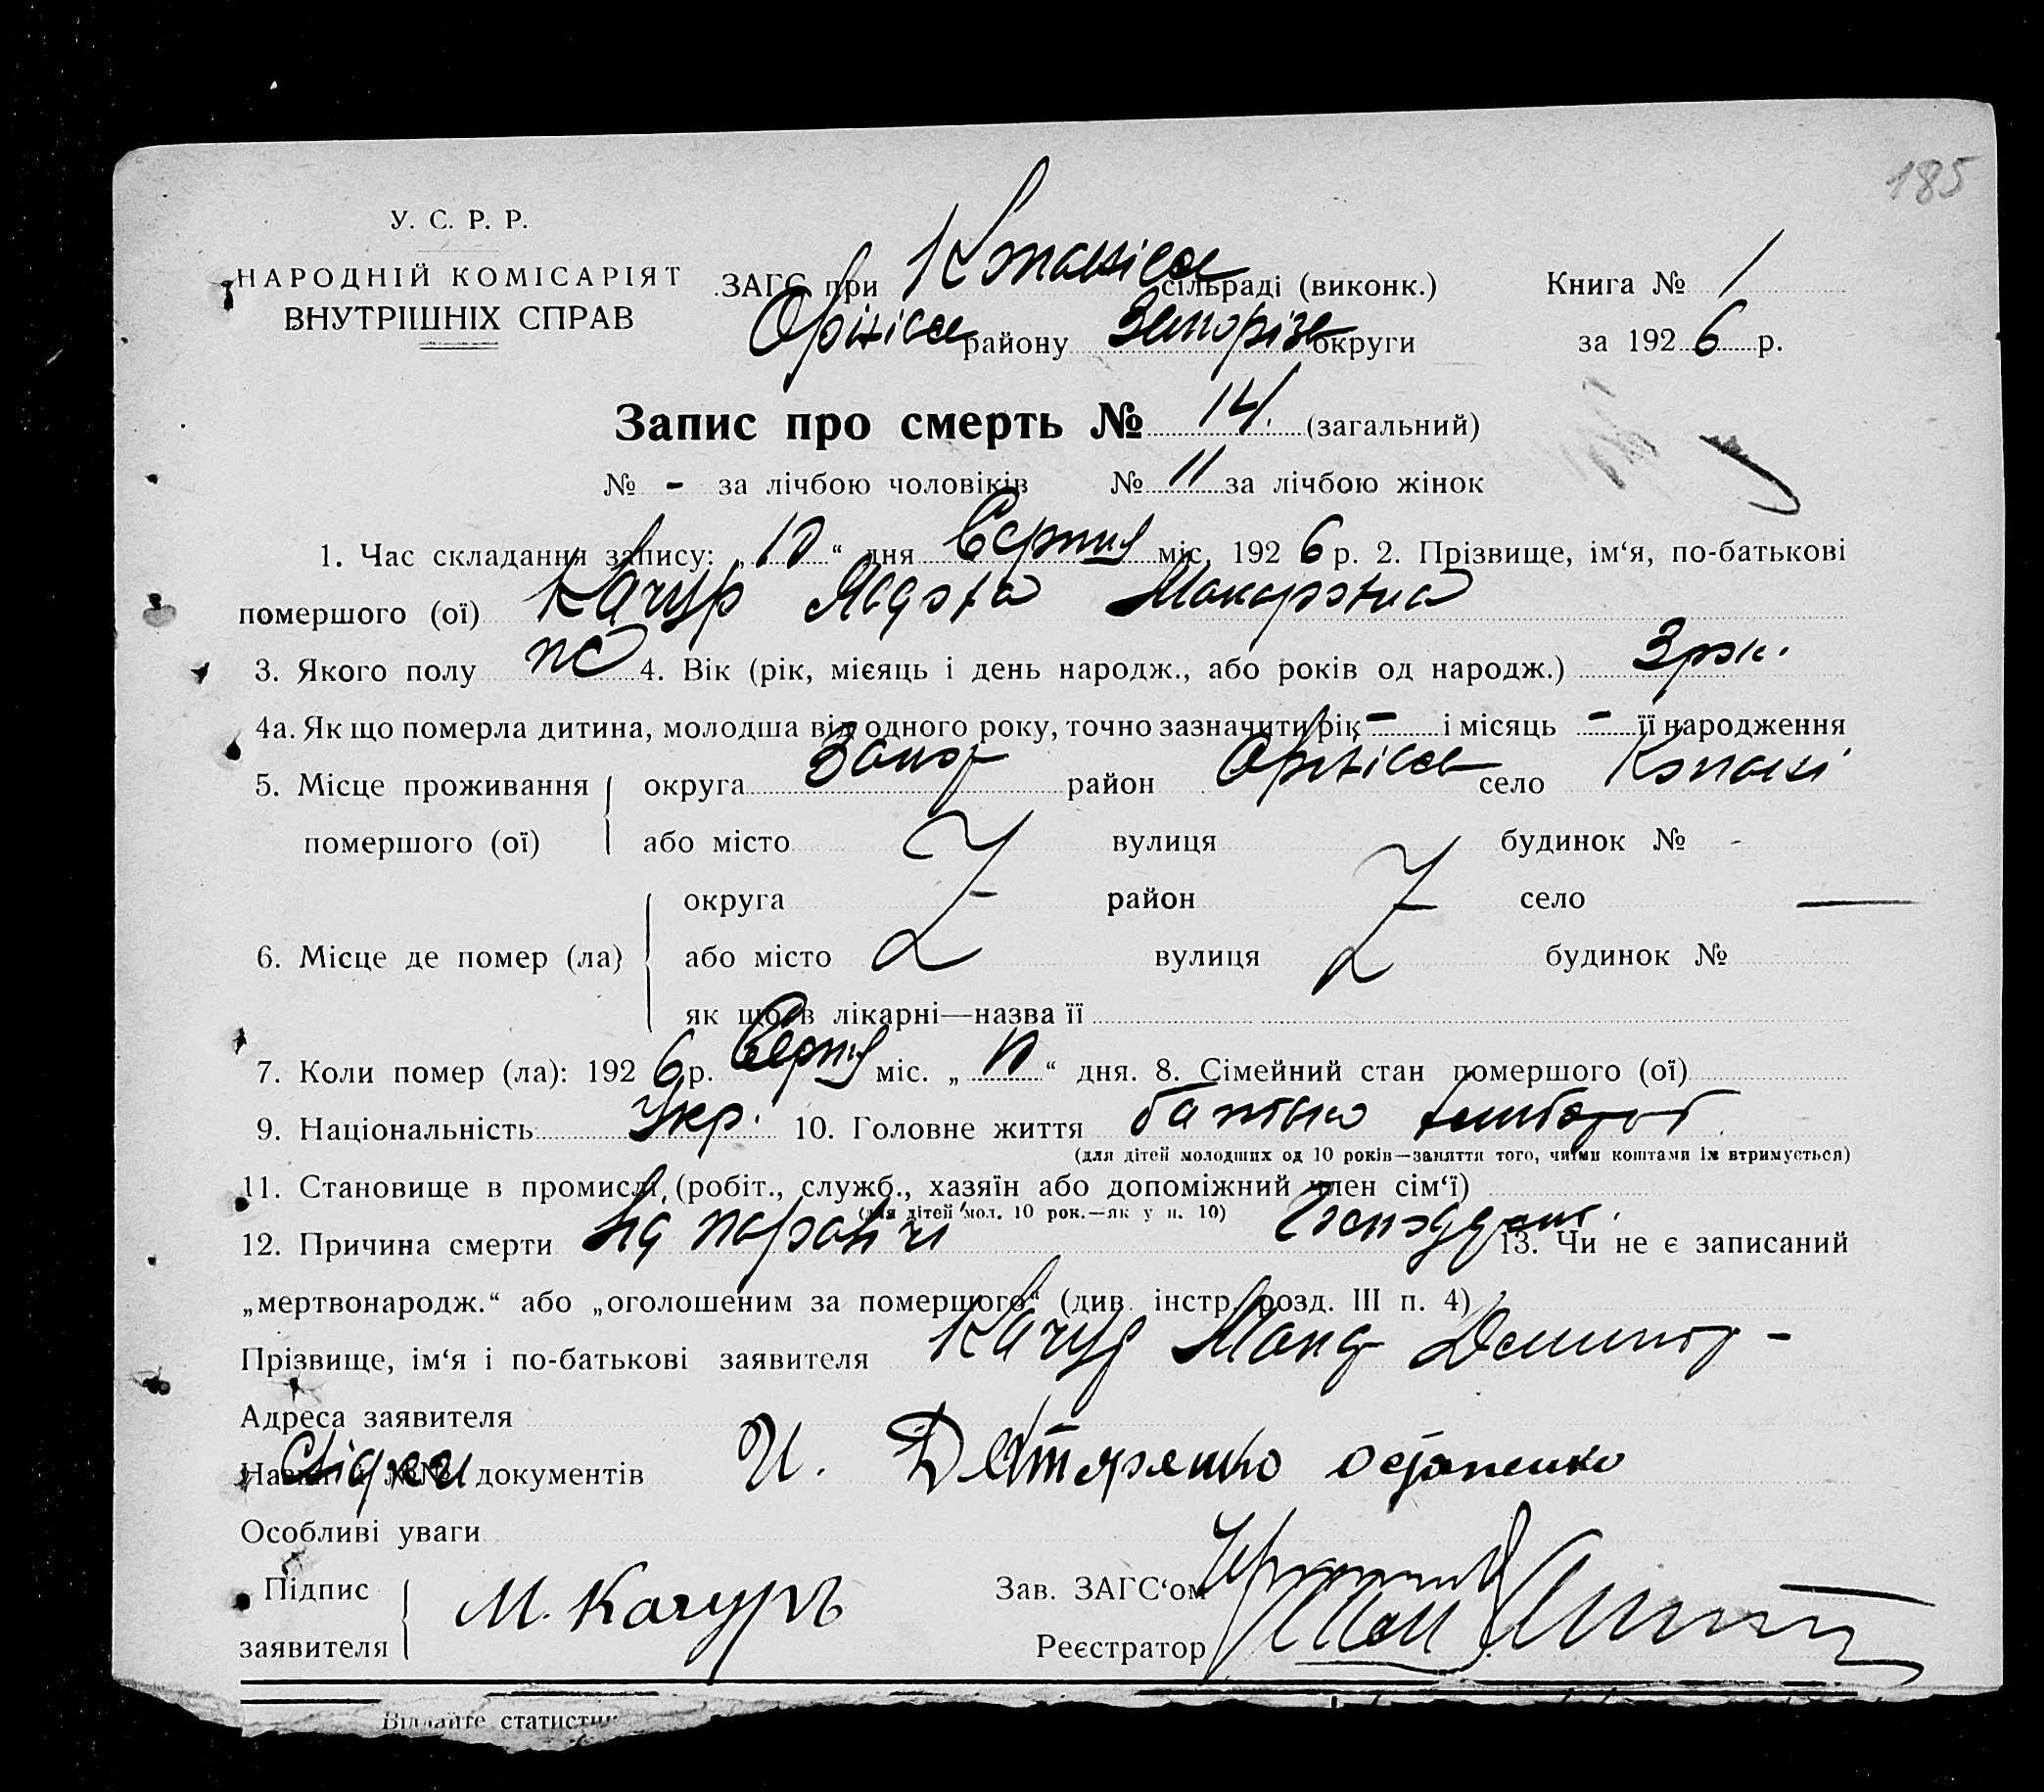 185
У. С. Р. Р.
НАРОДНІЙ КОМІСАРІЯТ
ВНУТРІШНІХ СПРАВ
ЗАГС при Копанівсь сільраді (виконк.) Книга № 1
Оріхівсь району Запорізь округи за 1926 р.
Запис про смерть № 14. (загальний)
№ - за лічбою чоловіків № 11 за лічбою жінок
1. Час складання запису: „10“ дня Серпня міс. 1926 р. 2. Прізвище, ім‘я, по-батькові
помершого (ої) Качур Макаровна
3. Якого полу 4. Вік (рік, місяць і день народж., або років од народж.) 3 рок.
4а. Як що померла дитина, молодша від одного року, точно зазначити рік - і місяць - її народження
5. Місце проживання округа Запор район Оріхівсь село Копані
помершого (ої) або місто вулиця будинок № -
округа район село —
6. Місце де помер (ла) або місто вулиця будинок №
як що в лікарні—назва її
7. Коли помер (ла): 1926 р. Серпня міс. „10“ дня. 8. Сімейний стан помершого (ої)
9. Національність Укр. 10. Головне життя батько хлібороб
(для дітей молодших од 10 років—заняття того, чиїми коштами їх втримується)
11. Становище в промислі (робіт., служб., хазяїн або допоміжний член сім‘ї)
(для дітей мол. 10 рок.—як у п. 10)
12. Причина смерти 13. Чи не є записаний
„мертвонародж.“ або „оголошеним за помершого“ (див. інстр. розд. III п. 4)
Прізвище, ім‘я і по-батькові заявителя Качур Макар
Адреса заявителя
Назви й №№ документів Свідки И. Дегтяренко Остапенко
Особливі уваги
Підпис
заявителя М. Качуръ
Зав. ЗАГС‘ом
Реєстратор